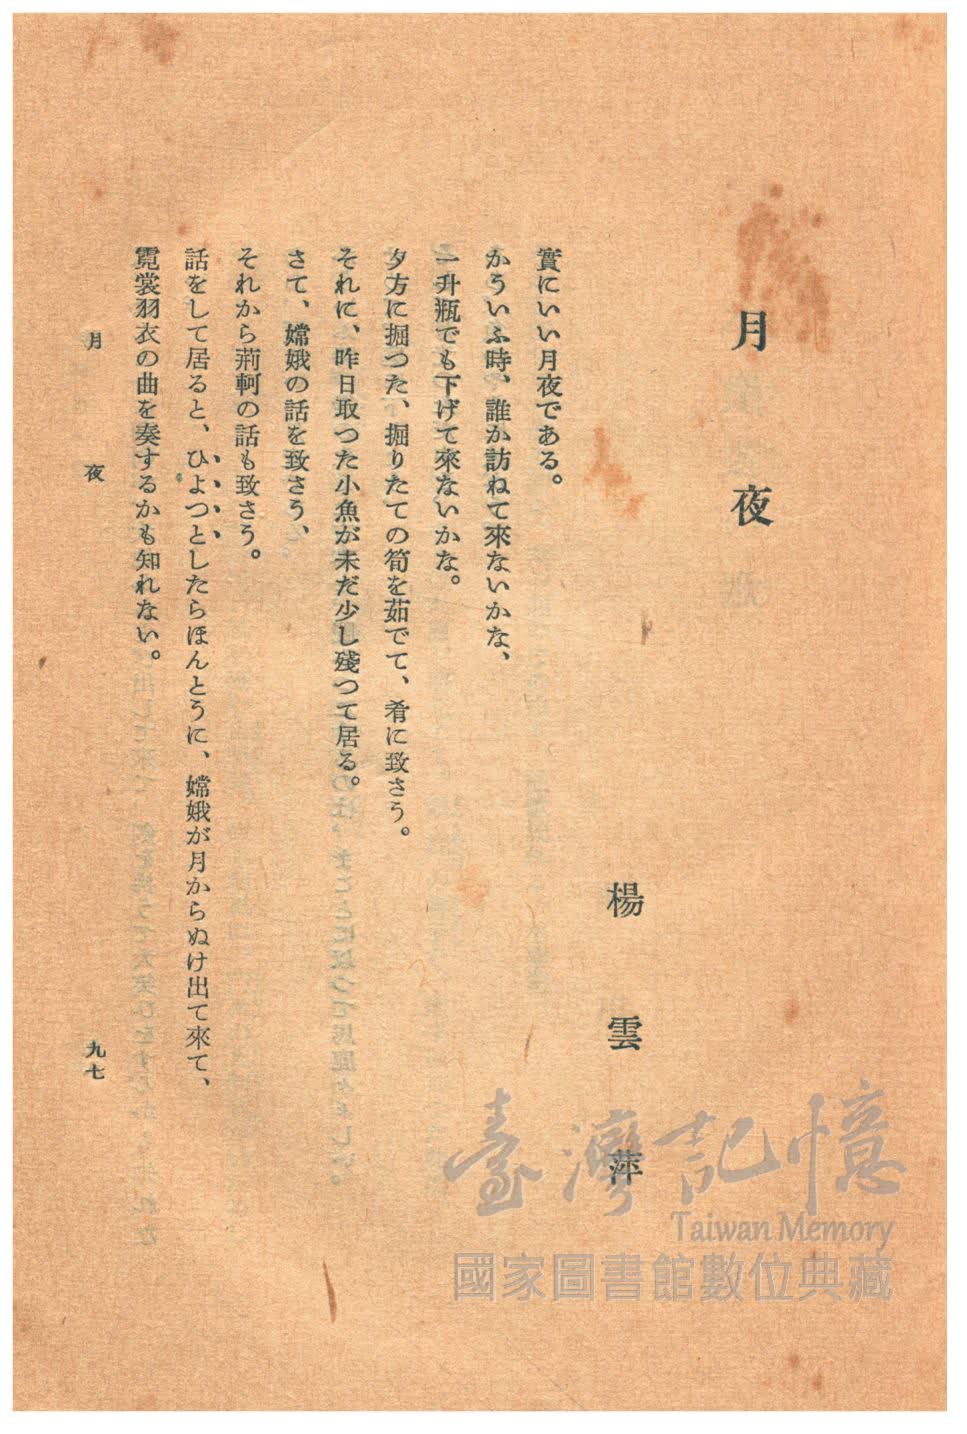 月夜
楊雲萍
實にいい月夜である。
かういふ時、誰か訪ねて來ないかな、
一升瓶でも下げて來ないかな。
夕方に掘つた、掘りたての筍を茹でて、肴に致さう。
それに、昨日取つた小魚が未だ少し殘つて居る。
さて、嫦娥の話を致さう、
それから荊軻の話も致さう。
話をして居ると、ひよつとしたらほんとうに、嫦娥が月からぬけ出て來て、
霓裳羽衣の曲を奏するかも知れない。
月夜
九七
臺灣記憶
Taiwan Memory
國家圖書館數位典藏